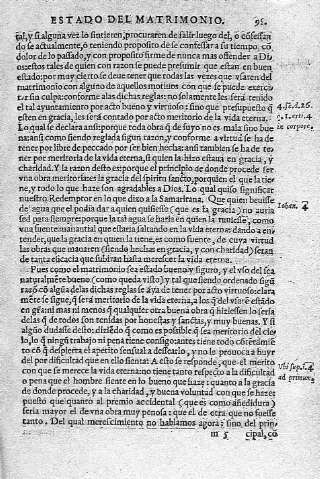 ESTADO DEL MATRIMONIO. 95.
tal, y si alguna vez lo sintieren, procuraren de salir luego del, o cõfessan
do se actualmente, o teniendo proposito de se confessar a su tiempo, cõ
dolor de lo passado, y con proposito firme de nunca mas offender a Di
os: estos tales de quien con razon se puede presumir que estan en buen
estado: por muy cierto se deue tener que todas las vezes que vsaren del
matrimonio con alguno de aquellos motiuos con que se puede exerci-
tar sin culpa, conforme a las dichas reglas: no solamente les será tenido
el tal ayuntamiento por acto bueno y virtuoso: sino que presupuesto q̃
esten en gracia, les será contado por acto meritorio de la vida eterna.
Lo qual se declara ansi: porque toda obra q̃ de suyo no es mala sino bue
na: ansi como siendo reglada segun razon, y conforme a virtud se ha de
tener por libre de peccado por ser bien hecha: ansi tambien se ha de te-
ner por meritoria de la vida eterna, si quien la hizo estaua en gracia, y
charidad. Y la razon desto es: porque el principio de donde procede ser
vna obra meritoria es la gracia del spiritu sancto, por quien el que la tie
ne, y todo lo que haze son agradables a Dios. Lo qual quiso significar
nuestro Redemptor en lo que dixo a la Samaritana. Que quien beuiesse
de agua que el podia dar a quien quisiesse (que es la gracia) no auria
sed para siempre: porque la tal agua se haria en el que la tuuiesse, como
vna fuente manantial que estaria saltando en la vida eterna: dando a en-
tender, que la gracia en quien la tiene, es como fuente, de cuya virtud
las obras que manaren (siendo hechas en gracia, y con charidad) serán
de tanta eficacia que subiran hasta merescer la vida eterna.
Pues como el matrimonio sea estado bueno y siguro, y el vso del sea
naturalmẽte bueno (como queda visto) y tal que siendo ordenado segũ
razõ cõ algũa de las dichas reglas se aya de tener por acto virtuoso: clara
mẽte se sigue, q̃ será meritorio de la vida eterna, a los q̃ del vsarẽ estãdo
en gr̃a: ni mas ni menos q̃ qualquier otra buena obra q̃ hiziessen lo seria
de las q̃ de todos son tenidas por honestas y sanctas, y muy buenas. Y si
alguo dudasse desto: diziẽdo q̃ como es posible q̃ sea meritorio del cie-
lo, lo q̃ ningũ trabajo ni pena tiene consigo: antes tiene todo cõtẽtamiẽ
to cõ q̃ despierta el apetito sensual a dessearlo, y no lo prouoca a huyr
del por difficultad que en ello sienta: A esto se responde, que el merito
con que se merece la vida eterna no tiene tanto respecto a la difficultad
o pena que el hombre siente en lo bueno que haze: quanto a la gracia
de donde procede, y a la charidad, y buena voluntad con que se haze:
puesto que quanto al premio accidental (que es como añedidura)
seria mayor el de vna obra muy penosa: que el de otra que no fuesse
tanto. Del qual merescimiento no hablamos agora: sino del prin-
m 5 cipal, cõ
4. sẽ. d. 26.
in corpore.
Iohan. 4
Vbi sup. q. 4
ad primum